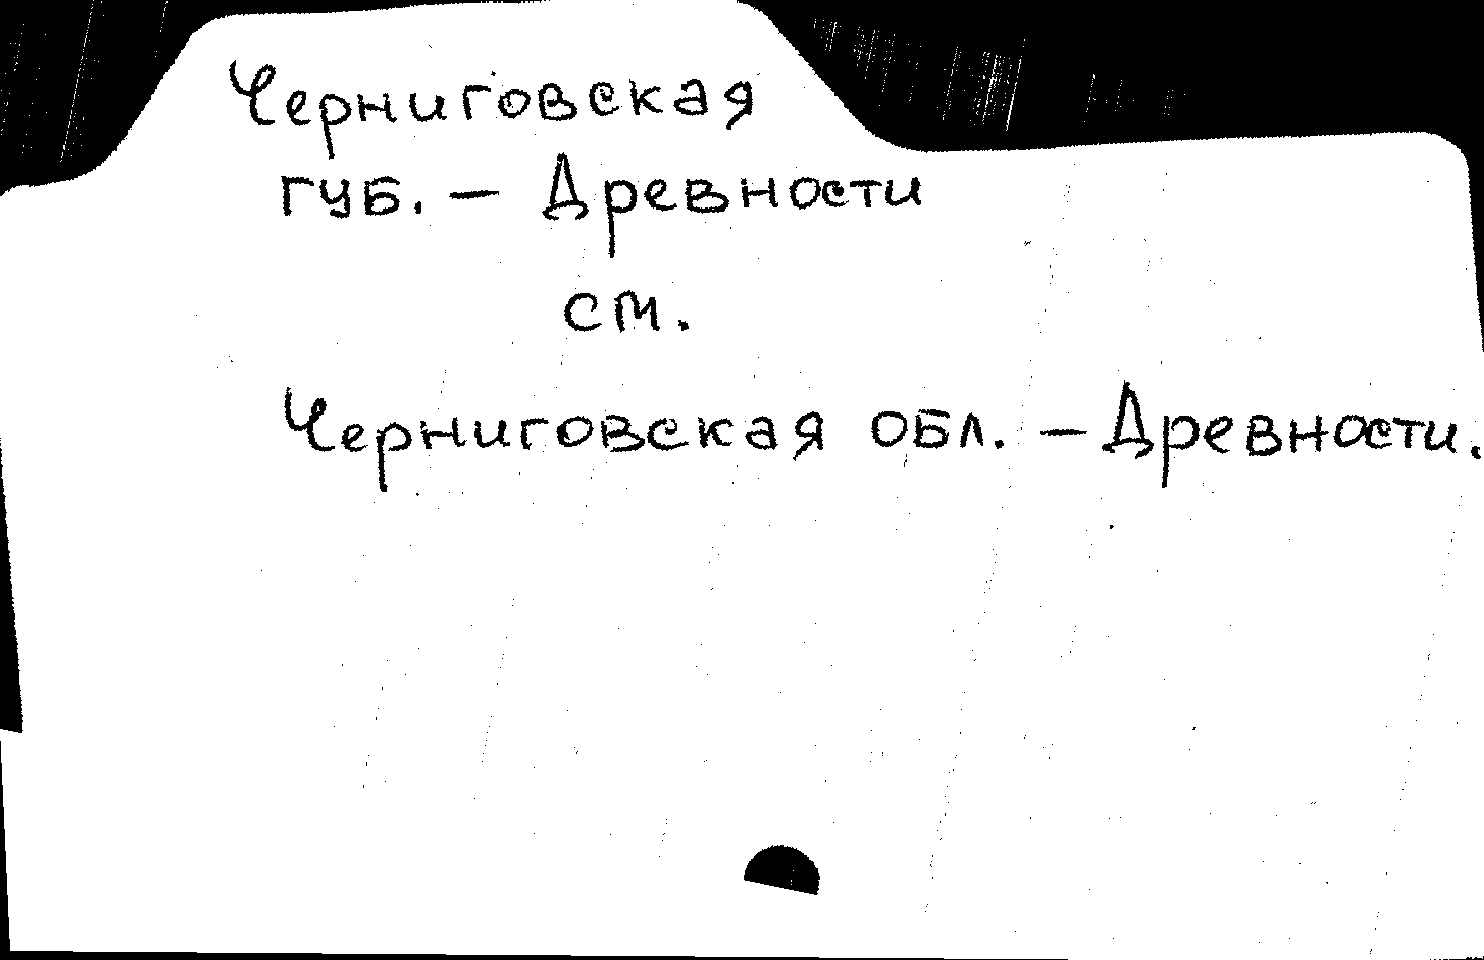 Черниговская
губ. — Древности
см.
Черниговская обл. — Древности.